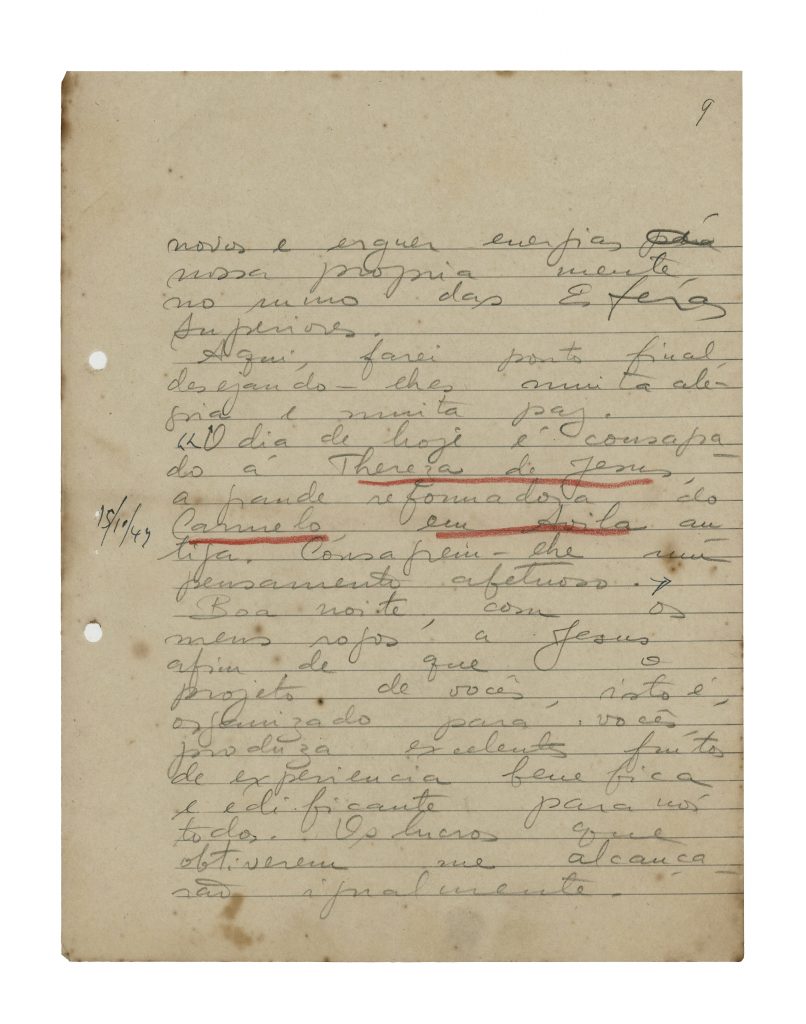 9
novos e erguer energias
nossa propria mente
no rumo das Esferas
Superiores.
Aqui, farei ponto final
desejando-lhes muita ale-
gria e muita paz.
«O dia de hoje é consagra-
do á Thereza de Jesus,
a grande reformadora do
15/10/47
Carmelo em Avila an
tiga. Consagrem-lhe um
pensamento afetuoso.
Boa noite, com os
meus rogos a Jesus
afim de que o
projeto de vocês, isto é,
organizado para vocês,
produza excelents frutos
de experiencia benefica
e edificante para nós
todos. Os lucros que
obtiverem me alcança-
rão igualmente.